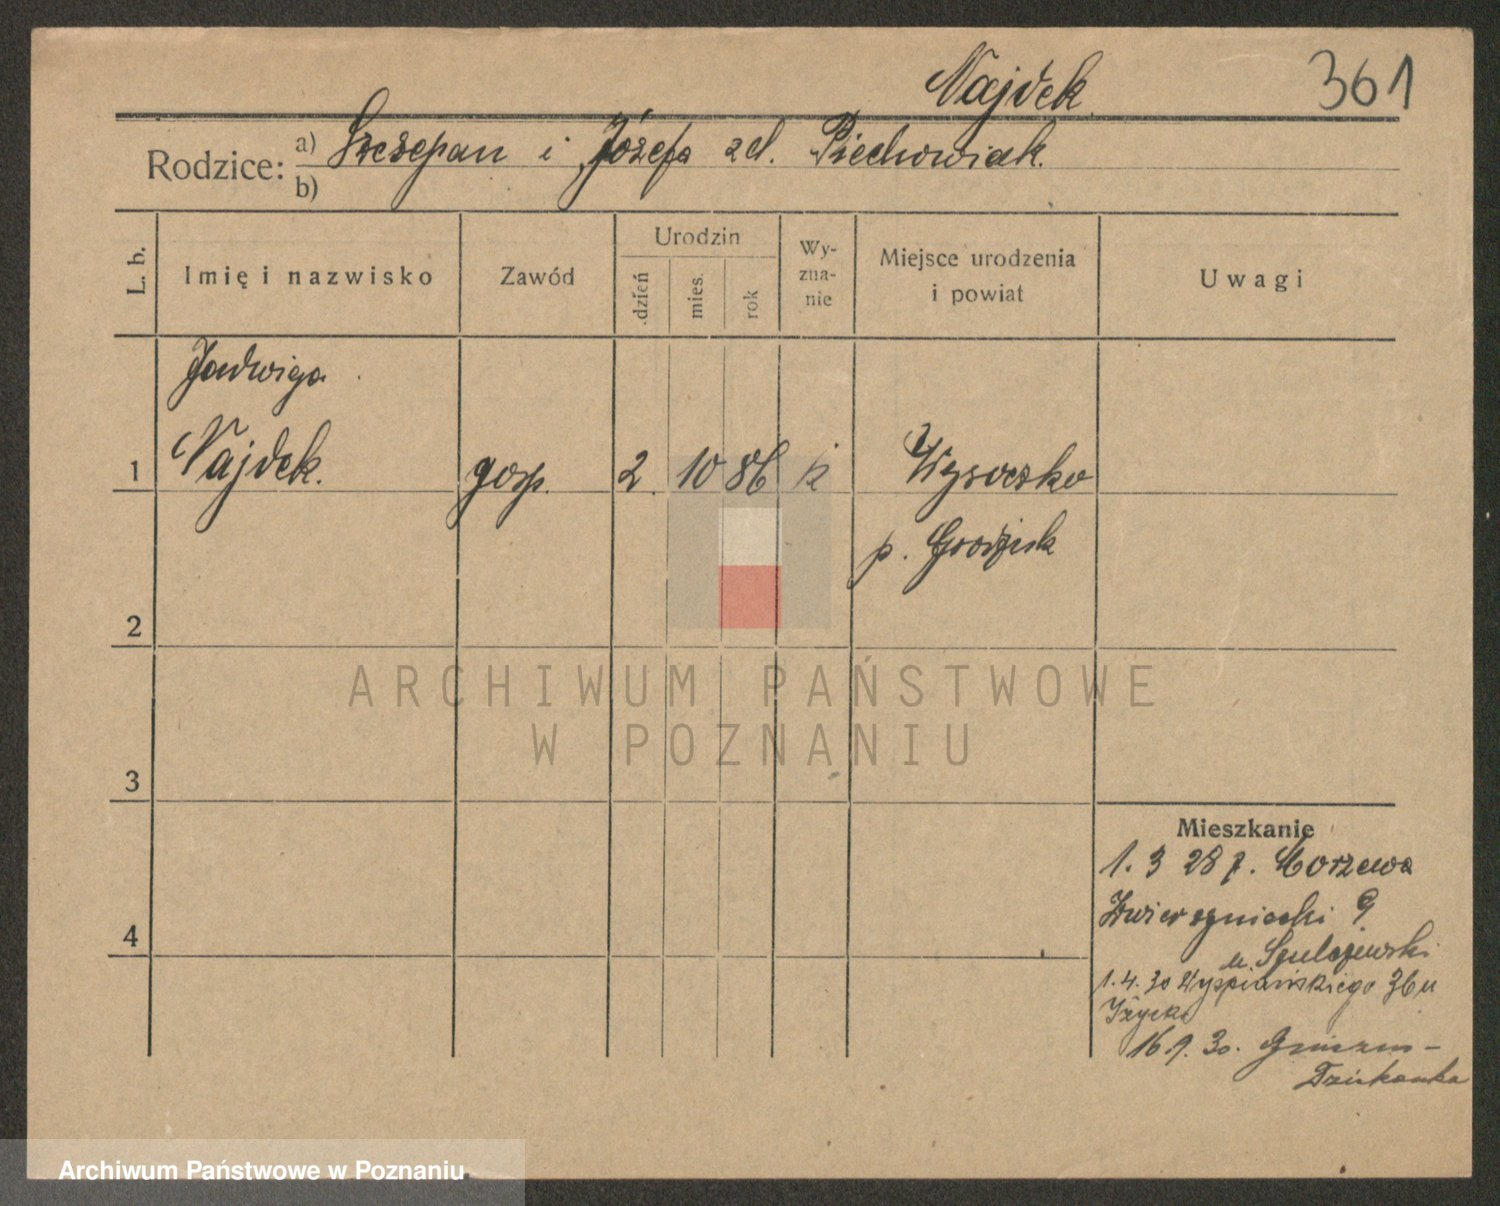 Najdek
361
Rodzice: a) Szczepan i Józefa zd. Piechowiak.
b)
L. b. Imię i nazwisko Zawód Urodzin dzień mies. rok Wy-zna-nie Miejsce urodzenia i powiat Uwagi
Jadwiga
1 Najdek. gosp. 2. 10 86 k Wysoczko
p. Grodzisk
2
ARCHIWUM PAŃSTWOWE
W POZNANIU
3
Mieszkanie
1. 3 28 z. Morzewa
Zwierzyniecki 9
4
u. Szulczewski
1.4.30 Wyspiańskiego 36 u
Iżycki
16.9.30.
Archiwum Państwowe w Poznaniu